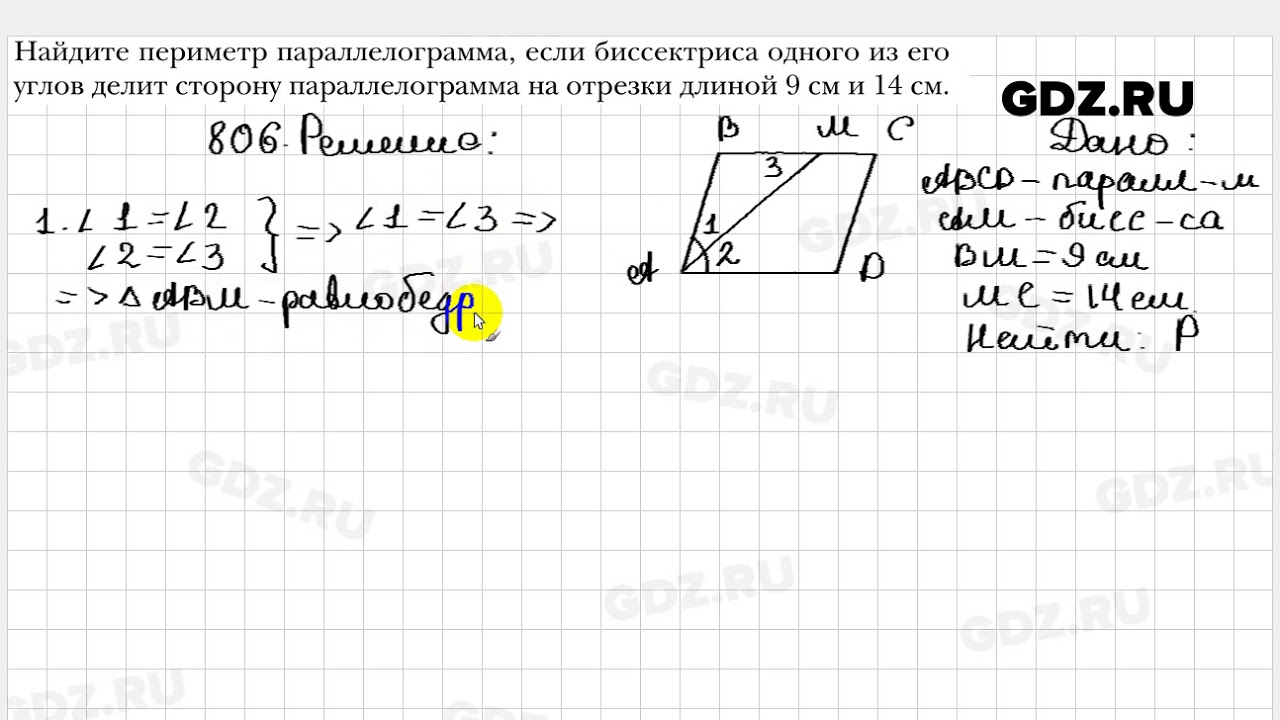 Найдите периметр параллелограмма, если биссектриса одного из его
углов делит сторону параллелограмма на отрезки длиной 9 см и 14 см.
GDZ.RU
806. Решение:
1. ∠ 1 = ∠ 2
∠ 2 = ∠ 3
} => ∠ 1 = ∠ 3 =>
=> △ ABM - равнобедр
B M C
3
1
2
A D
Дано:
ABCD - паралл-м
AM - бисс-са
BM = 9 см
MC = 14 см
Найти: P
GDZ.RU
GDZ.RU
GDZ.RU
GDZ.RU
GDZ.RU
GDZ.RU
GDZ.RU
GDZ.RU
GDZ.RU
GDZ.RU
GDZ.RU